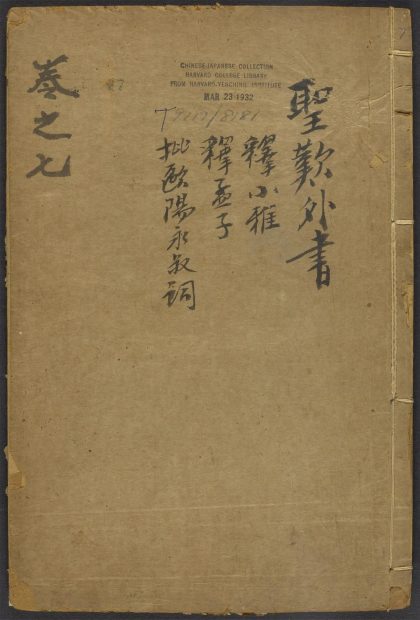 聖歎外書
釋小雅
釋孟子
批歐陽永叔詞
卷之七
CHINESE-JAPANESE COLLECTION
HARVARD COLLEGE LIBRARY
FROM HARVARD-YENCHING INSTITUTE
MAR 23 1932